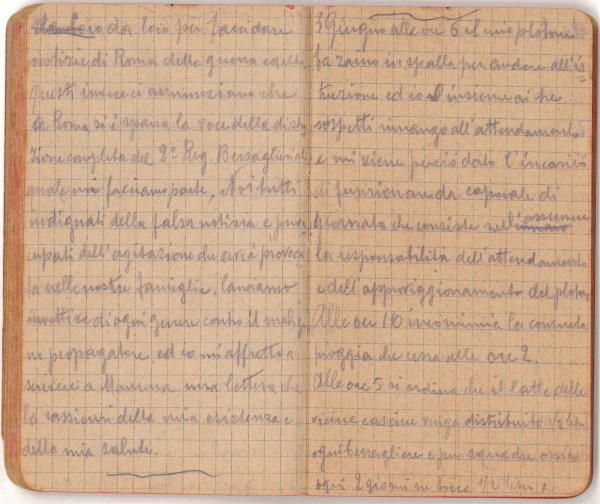 da loro per laccidare
notizie di Roma della guerra ed alla
questi invece ci annunziano che
a Roma si è sparsa la voce della distru
zione completa del 2° Reg. Bersaglieri al
quale noi facciamo parte. Noi tutti
indignati della falsa notizia e preoc
cupati dell'agitazione che avrà provoca
ta nelle nostre famiglie, lanciamo
invettive di ogni genere contro il mali
no propagatore ed io mi affretto a
scrivere a Mamma una lettera che
la rassicuri della mia esistenza e
della mia salute.
3 Giugno alle ore 6 il mio plotone
fa zaino in spalla per andare all'is
truzione ed io insieme ai tre
sospetti rimango all'attendamento
e mi viene perciò dato l'incarico
di funzionare da caporale di
giornata che consiste nell'assumere
la responsabilità dell'attendamento
e dell'approviggionamento del plotone
Alle ore 16 incomincia la consueta
pioggia che cessa alle ore 2.
Alle ore 5 si ordina che il latte delle
vicine cascine venga distribuito 1/2 litro
ogni bersagliere e per squadre ossia
ogni 2 giorni